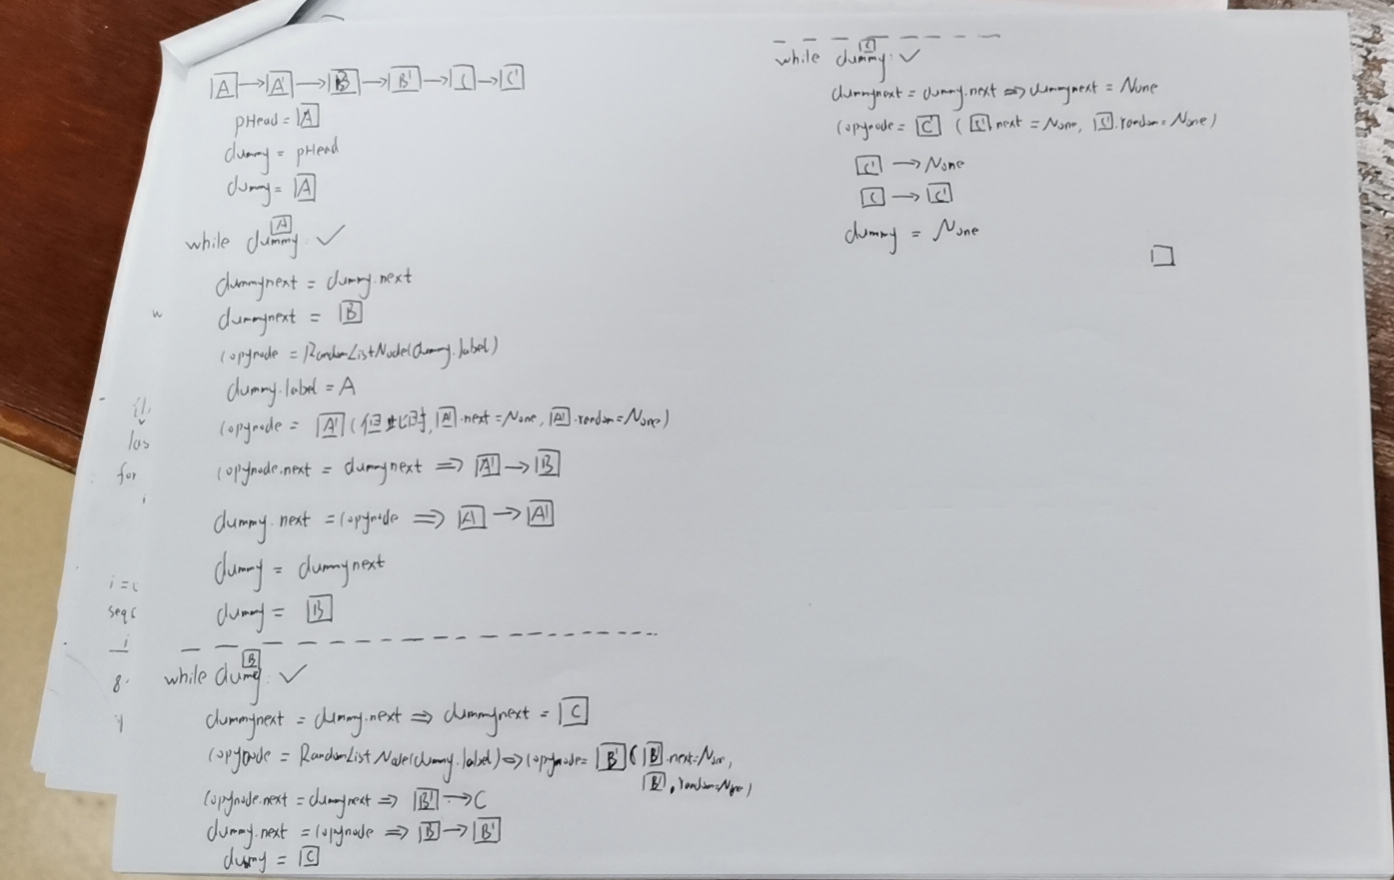 A → A' → B → B' → C → C'
pHead = A
dummy = pHead
dummy = A
A
while dummy: ✓
dummynext = dummy.next
dummynext = B
copynode = RandomListNode(dummy.label)
dummy.label = A
copynode = A' (但此时, A'.next=None, A'.random=None)
copynode.next = dummynext => A' → B
dummy.next = copynode => A → A'
dummy = dummynext
dummy = B
B
while dumy: ✓
dummynext = dummy.next => dummynext = C
copynode = RandomListNode(dummy.label) => copynode= B' ( B'.next=None,
B'.random=None)
copynode.next = dummynext => B' → C
dummy.next = copynode => B → B'
dummy = C
C
while dummy: ✓
dummynext = dummy.next => dummynext = None
copynode = C' ( C'.next = None, C'.random = None)
C' → None
C → C'
dummy = None
w
for
i
8.